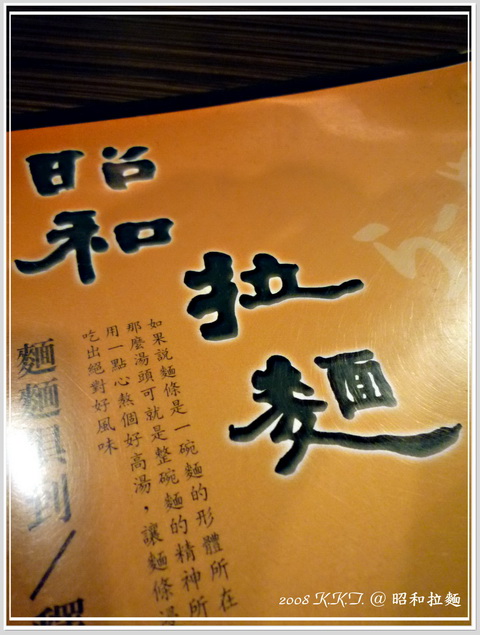 昭和
拉麵
如果說麵條是一碗麵的形體所在
那麼湯頭可就是整碗麵的精神所
用一點心熬個好高湯，讓麵條
吃出絕對好風味
麵麵俱到／
2008 K.K.T. @ 昭和拉麵